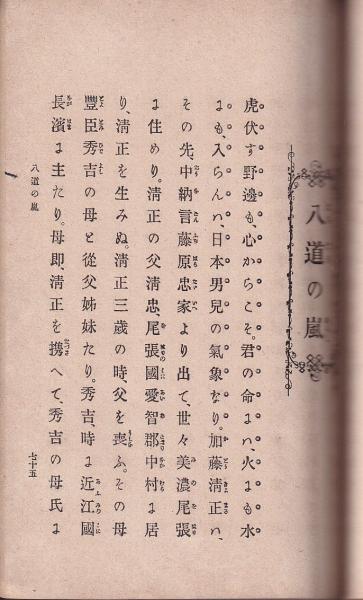 八道の嵐
虎伏す野邊も、心からこそ。君の命にハ、火にも水
にも、入らんハ、日本男兒の氣象なり。加藤清正ハ、
その先、中納言藤原忠家より出て、世々美濃尾張
に住めり。清正の父清忠、尾張國愛智郡中村に居
り、清正を生みぬ。清正三歳の時、父を喪ふ。その母
豐臣秀吉の母と從父姉妹たり。秀吉、時に近江國
長濱に主たり。母即、清正を携へて、秀吉の母氏に
八道の嵐
七十五